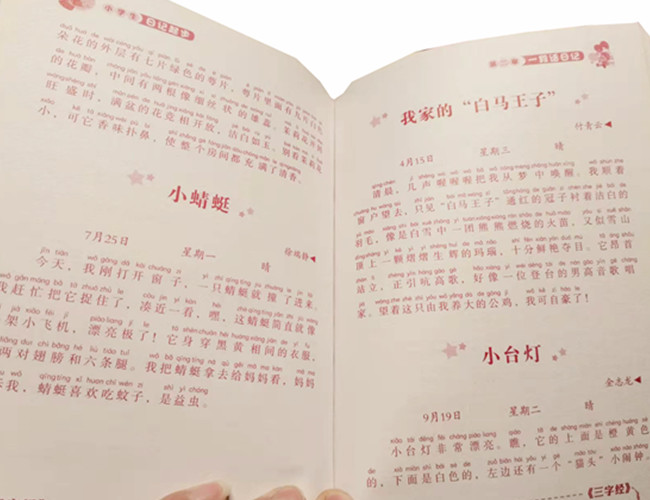 小学生日记起步
朵花的外层有七片绿色的萼片,萼片里面有九片白色
的花瓣,中间有两根像细丝状的雄蕊。茉莉花开到
旺盛时,满盆的花竞相开放,洁白如玉。别看茉莉花
小,可它香味扑鼻,使整个房间都充满了清香。
小蜻蜓
徐瑞锋
7月25日 星期一 晴
今天,我刚打开窗子,一只蜻蜓就撞了进来。
我赶忙把它捉住了,凑近一看,嘿,这蜻蜓简直就像
架小飞机,漂亮极了!它身穿黑黄相间的衣服,
两对翅膀和六条腿。我把蜻蜓拿去给妈妈看,妈妈
我,蜻蜓喜欢吃蚊子,是益虫。
第二章 一段话日记
我家的“白马王子”
付青云
4月15日 星期三 晴
清晨,几声喔喔喔把我从梦中唤醒。我顺着
窗户望去,只见“白马王子”通红的冠子衬着洁白的
羽毛,像是白雪中一团熊熊燃烧的火苗,又似雪山
顶上一颗熠熠生辉的玛瑙,十分鲜艳夺目。它昂首
站立,正引吭高歌,好像一位登台的男高音歌唱
家。望着这只由我养大的公鸡,我可自豪了!
小台灯
金志龙
9月19日 星期二 晴
小台灯非常漂亮。瞧,它的上面是橙黄色
的,下面是白色的,左边还有一个“猫头”小闹钟。
《三字经》